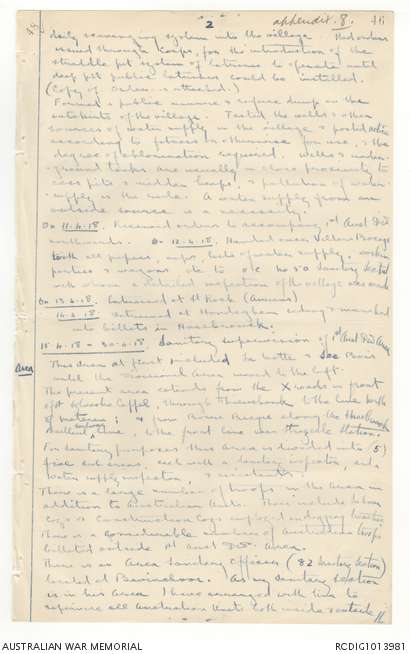 appendix. 8. 46
"2
daily scavenging system into the village. Had orders
issued through Corps, for the introduction of the
straddle pit system of latrines to operate until
deep pit public latrines could be installed.
(Copy of Orders is attached.)
Formed a public manure & refuse dump on the
outskirts of the village. Tested the wells & other
sources of water supply in the village & posted notices
according to fitness or otherwise for use, & the
degree of chlorination required. Wells & under-
ground tanks are usually in close proximity to
cess pits & midden heaps, & pollution of water
supply is the rule. A water supply from an
outside source is a necessity.
On 11.4.18. Received orders to accompany 1st Aust Div
northwards. On 12.4.18. Handed over Villers Bocage
with all papers, maps, lists of water supply, working
parties & wagons etc to O/C No 50 Sanitary Section
with whom a detailed inspection of the village was made
On 13.4.18. Entrained at St Roch (Amiens)
14.4.18 Detrained at Hondeghem siding & marched
into billets in Hazebrouck.
15.4.18 - 30.4.18 Sanitary supervision of 1st Aust Div Area
Area
This area at first included La Motte &
until the Divisional Area moved to the left.
The present area extends from the X roads in front
of, through Hazebrouck to the line north
of Meteren; & from along the Hazebrouck
line, to the front line near Strazeele Station.
For sanitary purposes this Area is divided into (5)
five sub areas, each with a sanitary inspector, and
water supply inspector, & assistants.
There is a large number of troops in the Area in
addition to Australian Units. These include Labour
Coys & Construction Coys employed in digging trenches
There is a considerable number of Australian troops
billeted outside 1st Aust Div. Area.
There is an Area Sanitary Officer (82 Sanitary Section)
located at. As my Sanitary Section
is in his Area I have arranged with him to
supervise all Australian Units both inside & outside the
AUSTRALIAN WAR MEMORIAL
RCDIG1013981